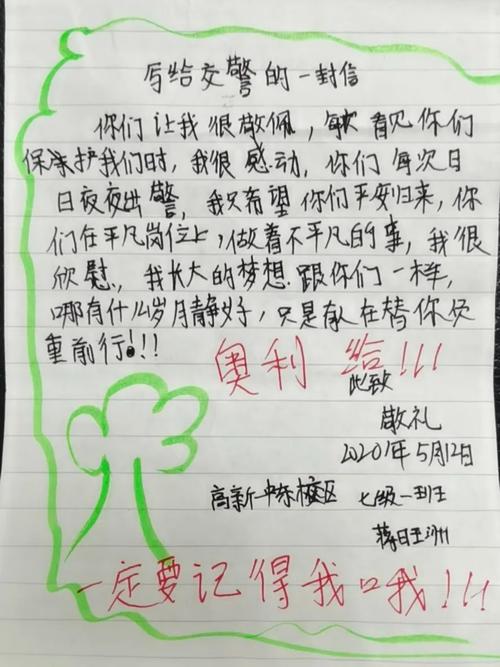 写给交警的一封信
你们让我很敬佩，每次看见你们
保护我们时，我很感动，你们每次日
日夜夜出警，我只希望你们平安归来，你
们在平凡岗位上，做着不平凡的事，我很
欣慰，我长大的梦想跟你们一样，
哪有什么岁月静好，只是有人在替你负
重前行!!!
奥利给!!!
此致
敬礼
2020年5月12日
高新一中东校区 七级一班
蒋日王洲
一定要记得我口哦!!!